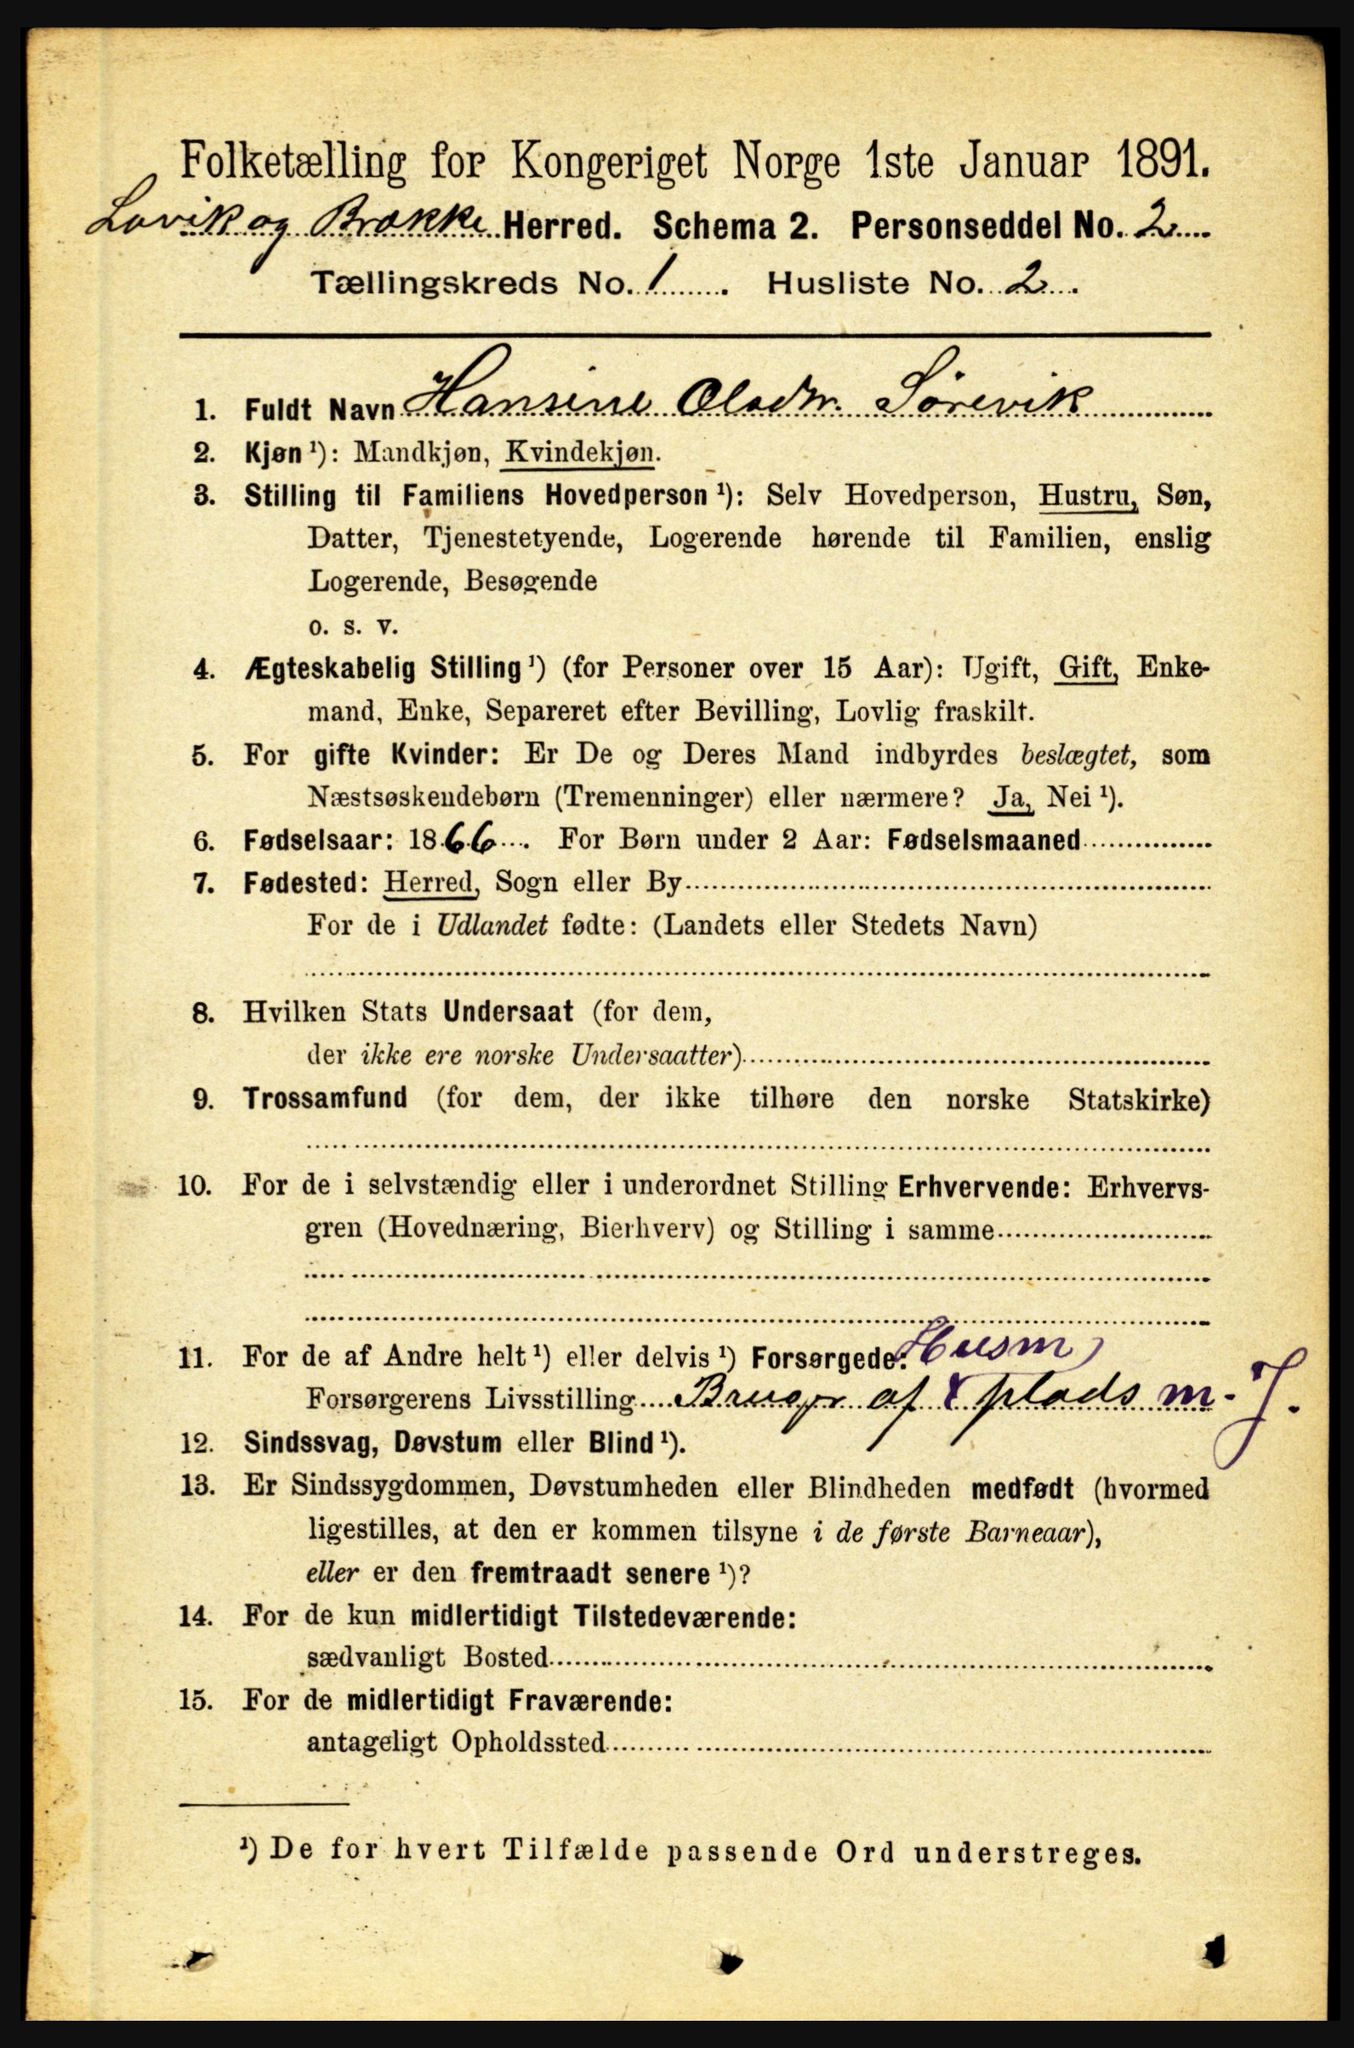 Folketælling for Kongeriget Norge 1ste Januar 1891.
Lavik og Brække Herred. Schema 2. Personseddel No. 2
Tællingskreds No. 1. Husliste No. 2.
1. Fuldt Navn Hansine Olsdtr. Sörevik
2. Kjøn ¹): Mandkjøn, Kvindekjøn.
3. Stilling til Familiens Hovedperson ¹): Selv Hovedperson, Hustru, Søn,
Datter, Tjenestetyende, Logerende hørende til Familien, enslig
Logerende, Besøgende
o. s. v.
4. Ægteskabelig Stilling ¹) (for Personer over 15 Aar): Ugift, Gift, Enke-
mand, Enke, Separeret efter Bevilling, Lovlig fraskilt.
5. For gifte Kvinder: Er De og Deres Mand indbyrdes beslægtet, som
Næstsøskendebørn (Tremenninger) eller nærmere? Ja, Nei ¹).
6. Fødselsaar: 1866. For Børn under 2 Aar: Fødselsmaaned
7. Fødested: Herred, Sogn eller By
For de i Udlandet fødte: (Landets eller Stedets Navn)
8. Hvilken Stats Undersaat (for dem,
der ikke ere norske Undersaatter)
9. Trossamfund (for dem, der ikke tilhøre den norske Statskirke)
10. For de i selvstændig eller i underordnet Stilling Erhvervende: Erhvervs-
gren (Hovednæring, Bierhverv) og Stilling i samme
11. For de af Andre helt ¹) eller delvis ¹) Forsørgede: Husm
Forsørgerens Livsstilling Bruger af plads m. J.
12. Sindssvag, Døvstum eller Blind ¹).
13. Er Sindssygdommen, Døvstumheden eller Blindheden medfødt (hvormed
ligestilles, at den er kommen tilsyne i de første Barneaar),
eller er den fremtraadt senere ¹)?
14. For de kun midlertidigt Tilstedeværende:
sædvanligt Bosted
15. For de midlertidigt Fraværende:
antageligt Opholdssted
¹) De for hvert Tilfælde passende Ord understreges.